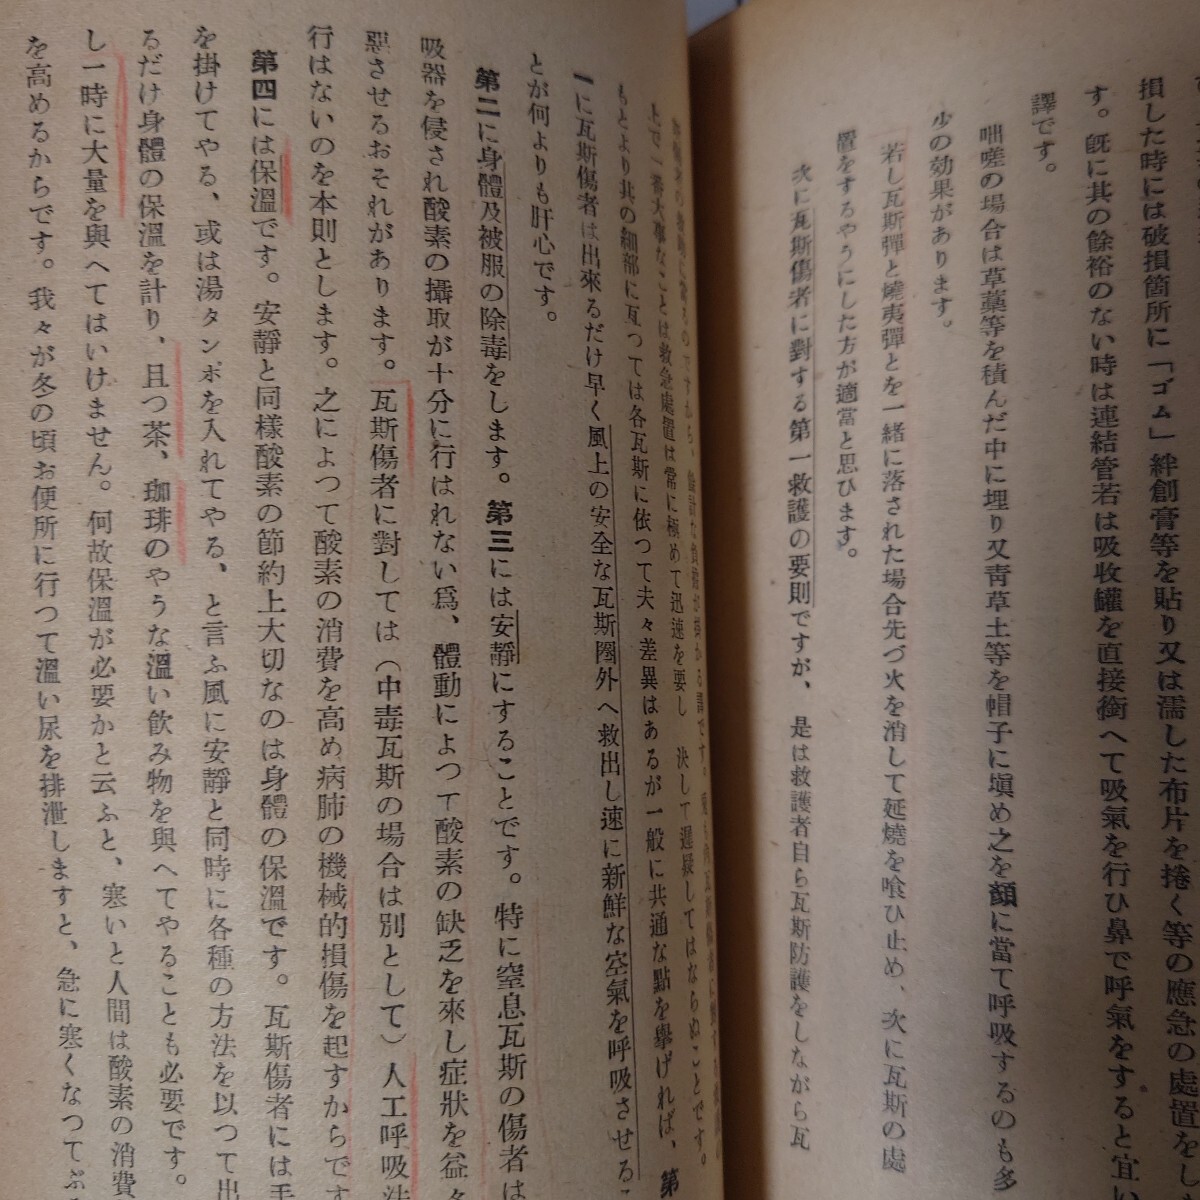 損した時には破損箇所に「ゴム」絆創膏等を貼り又は濡した布片を捲く等の應急の處置をし
す。旣に其の餘裕のない時は連結管若は吸收罐を直接銜へて吸氣を行ひ鼻で呼氣をすると宜い
譯です。
咄嗟の場合は草藁等を積んだ中に埋り又靑草土等を帽子に塡め之を顏に當て呼吸するのも多
少の効果があります。
若し瓦斯彈と燒夷彈とを一緒に落された場合先づ火を消して延燒を喰ひ止め、次に瓦斯の處
置をするやうにした方が適當と思ひます。
次に瓦斯傷者に對する第一救護の要則ですが、是は救護者自ら瓦斯防護をしながら瓦
上で一番大事なことは救急處置は常に極めて迅速を要し 決して遲疑してはならぬことです。
もとより其の細部に亙つては各瓦斯に依つて夫々差異はあるが一般に共通な點を擧げれば、第
一に瓦斯傷者は出來るだけ早く風上の安全な瓦斯圈外へ救出し速に新鮮な空氣を呼吸させる
とが何よりも肝心です。
第二に身體及被服の除毒をします。第三には安靜にすることです。特に窒息瓦斯の傷者は
吸器を侵され酸素の攝取が十分に行はれない爲、體動によつて酸素の缺乏を來し症狀を益々
惡させるおそれがあります。瓦斯傷者に對しては(中毒瓦斯の場合は別として)人工呼吸法
行はないのを本則とします。之によつて酸素の消費を高め病肺の機械的損傷を起すからです
第四には保溫です。安靜と同樣酸素の節約上大切なのは身體の保溫です。瓦斯傷者には毛
を掛けてやる、或は湯タンポを入れてやる、と言ふ風に安靜と同時に各種の方法を以つて出
るだけ身體の保溫を計り、且つ茶、珈琲のやうな溫い飮み物を與へてやることも必要です。
し一時に大量を與へてはいけません。何故保溫が必要かと云ふと、寒いと人間は酸素の消費
を高めるからです。我々が冬の頃お便所に行つて溫い尿を排泄しますと、急に寒くなつてぶる